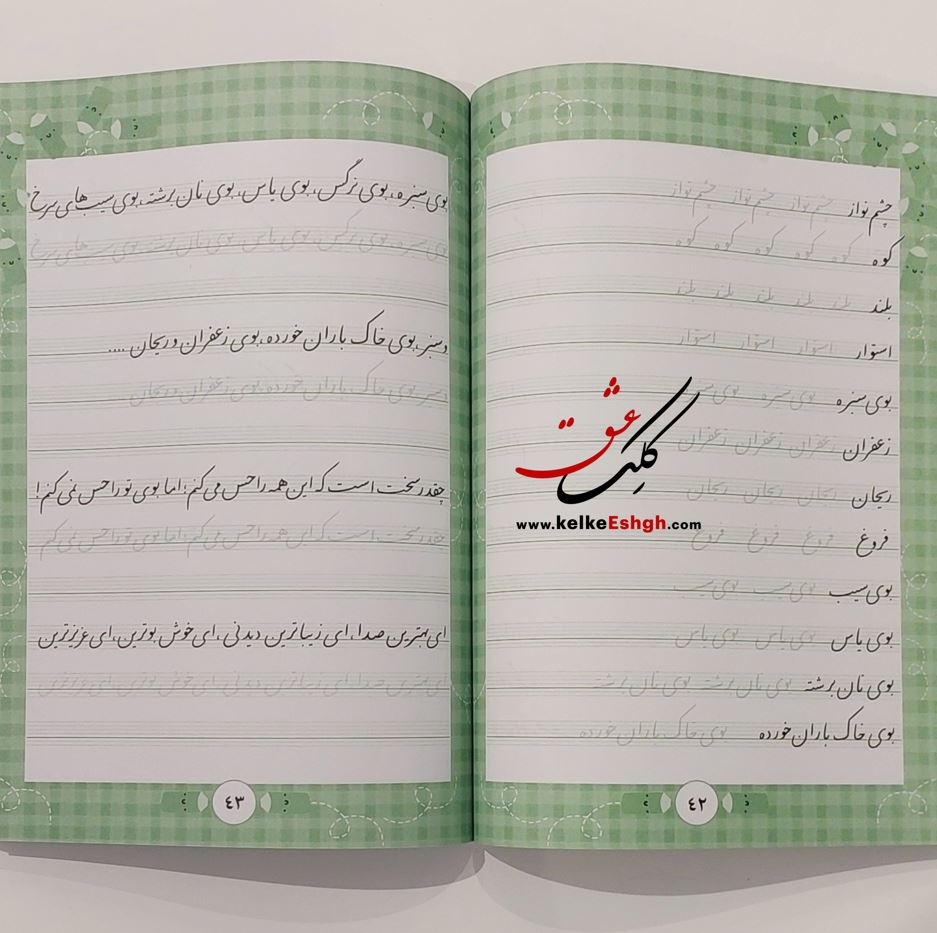 چشم نواز چشم نواز چشم نواز چشم نواز
کوه کوه کوه کوه کوه کوه
بلند بلند بلند بلند بلند بلند
استوار استوار استوار استوار
بوی سبزه بوی سبزه بوی سبزه
زعفران زعفران زعفران زعفران
ریحان ریحان ریحان ریحان
فروغ فروغ فروغ فروغ
بوی سیب بوی سیب بوی سیب
بوی یاس بوی یاس بوی یاس
بوی نان برشته بوی نان برشته بوی نان برشته
بوی خاک باران خورده بوی خاک باران خورده
۴۲
کلک عشق
www.kelkeEshgh.com
بوی سبزه، بوی نرگس، بوی یاس، بوی نان برشته، بوی سیب‌های سرخ
بوی سبزه، بوی نرگس، بوی یاس، بوی نان برشته، بوی سیب‌های سرخ
و سبز، بوی خاک باران خورده، بوی زعفران و ریحان ....
و سبز، بوی خاک باران خورده، بوی زعفران و ریحان
چقدر سخت است که این همه را حس می‌کنم؛ اما بوی تو را حس نمی‌کنم!
چقدر سخت است که این همه را حس می‌کنم؛ اما بوی تو را حس نمی‌کنم
ای بهترین صدا، ای زیباترین دیدنی، ای خوش بوترین، ای عزیزترین
ای بهترین صدا، ای زیباترین دیدنی، ای خوش بوترین، ای عزیزترین
۴۳